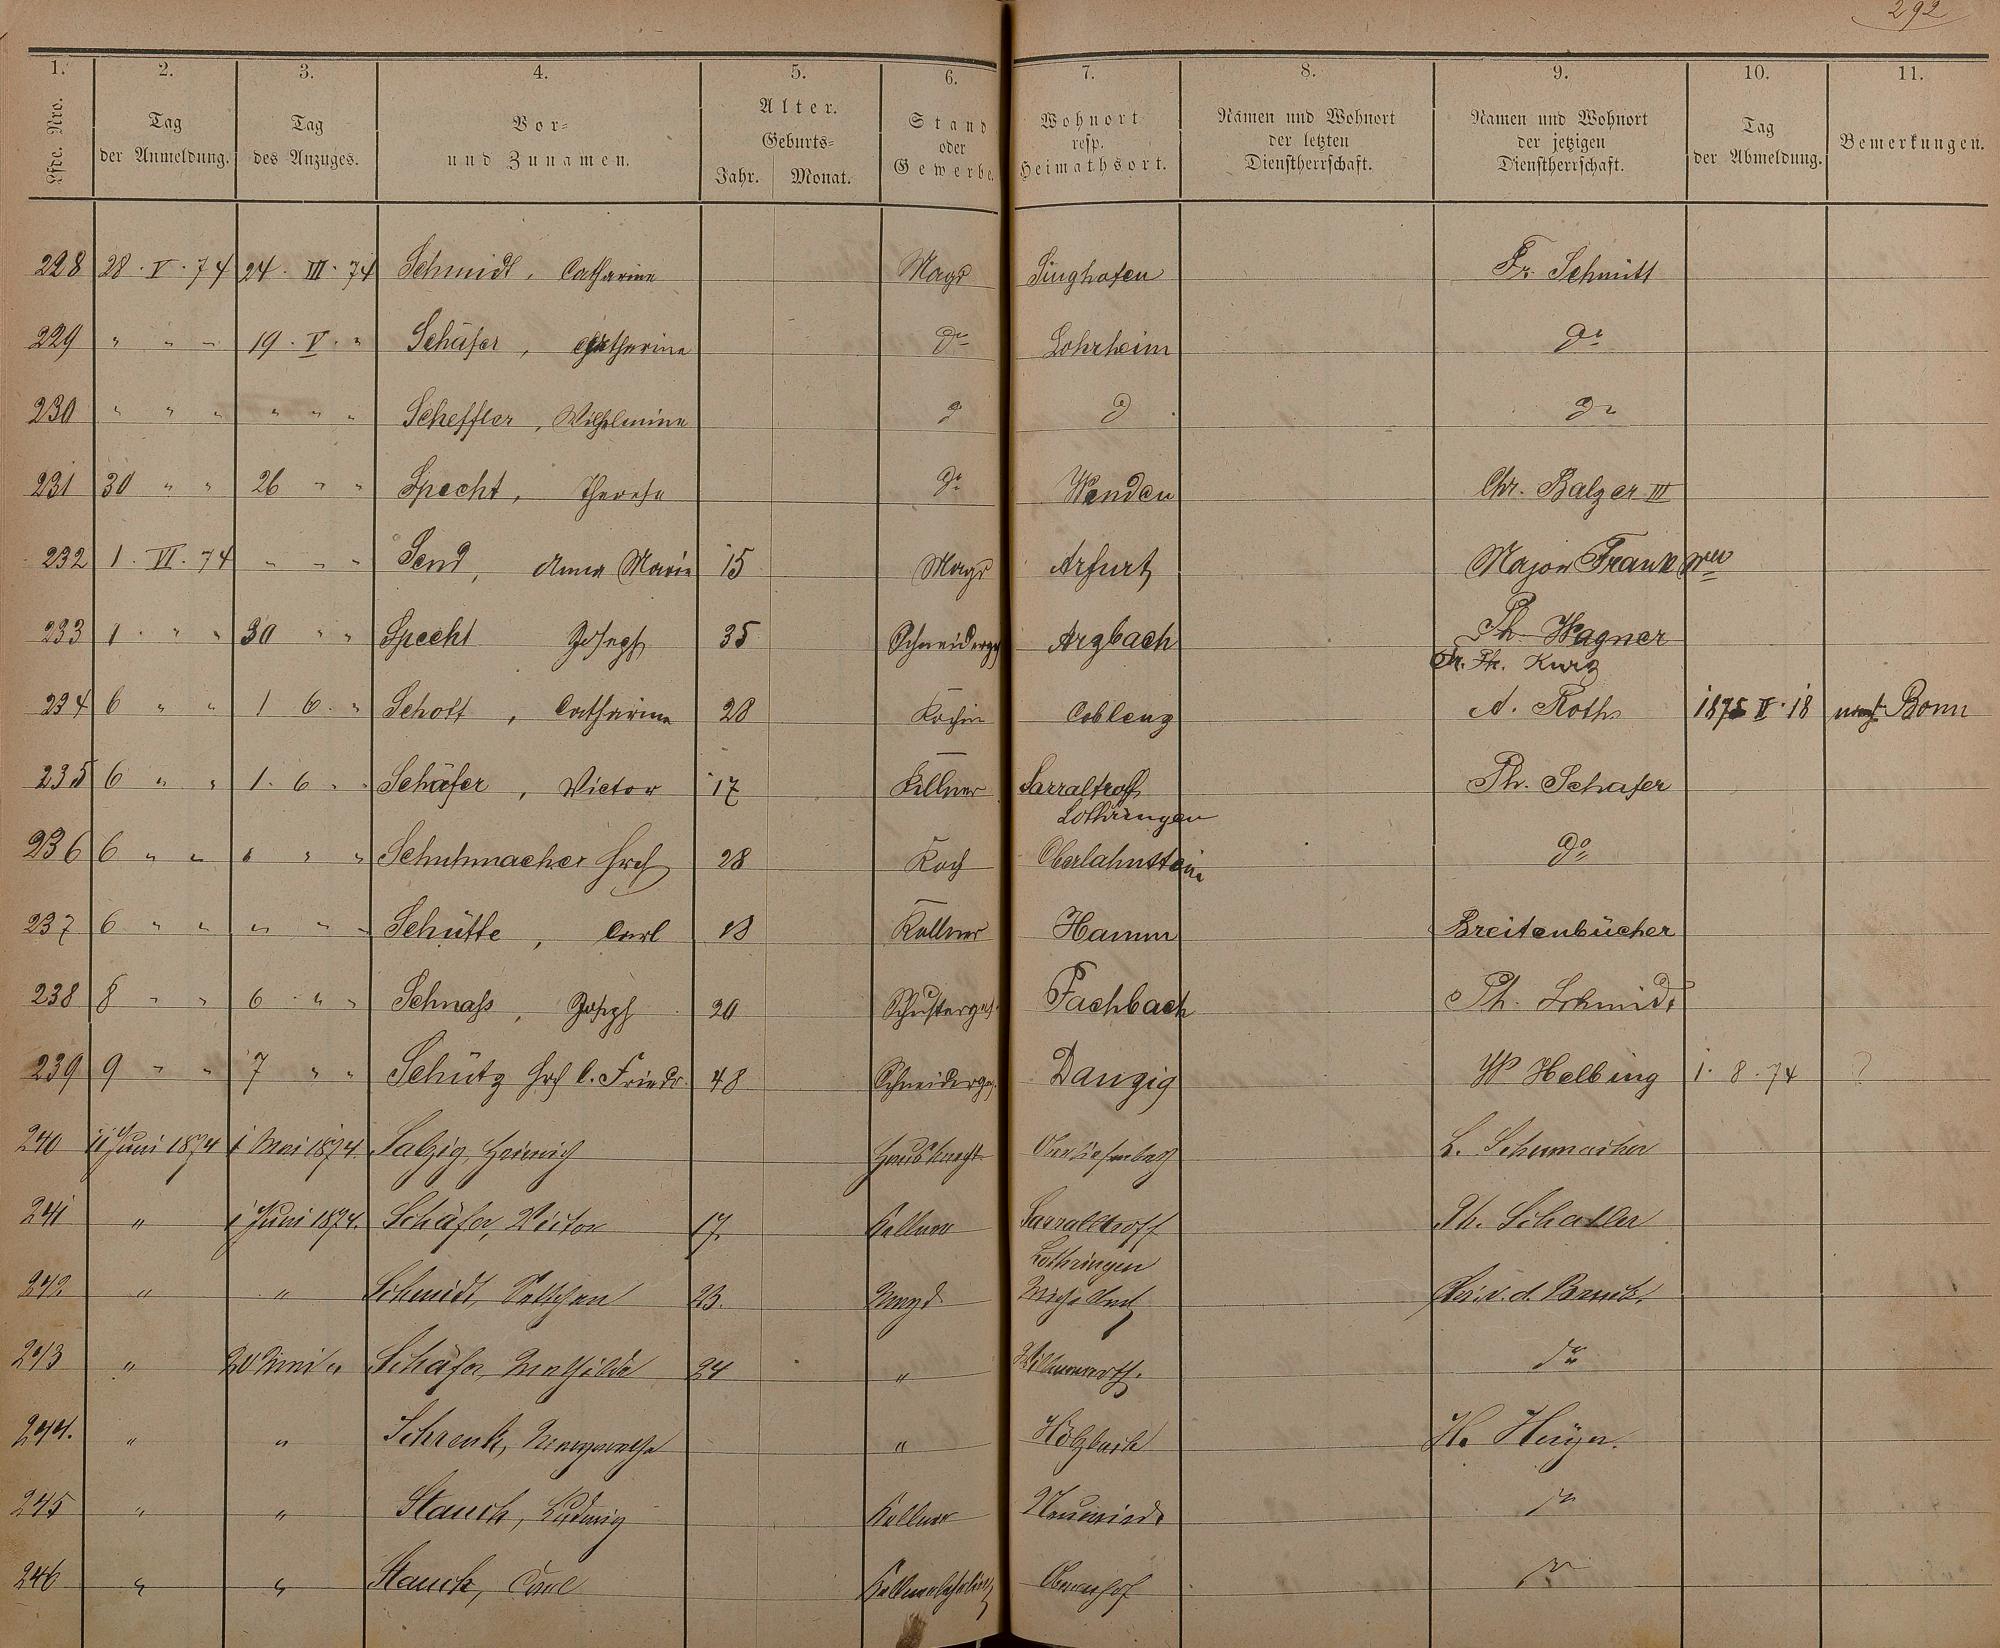 292
1. 2. 3. 4. 5. 6. 7. 8. 9. 10. 11.
Lfde. Nro. Tag der Anmeldung. Tag des Anzuges. Vor- und Zunamen. Alter. Geburts- Jahr. Monat. Stand oder Gewerbe. Wohnort resp. Heimathsort. Namen und Wohnort der letzten Dienstherrschaft. Namen und Wohnort der jetzigen Dienstherrschaft. Tag der Abmeldung. Bemerkungen.
228 28. V. 74 24. III. 74 Schmidt, Catharine Magd Singhofen Fr. Schmitt
229 " " " 19. V. " Schäfer, Catharine do Lohrheim do
230 " " " " " " Scheffler, Wilhelmine d d do
231 30 " " 26 " " Specht, Therese do Wenden Chr. Balzer III
232 1. VI. 74 " " " Send, Anna Marie 15 Magd Arfurt Major Frank
233 1. " " 30 " " Specht Joseph 35 Schneiderges Arzbach Ph. Wagner
Fr. Th. Kurz
234 6 " " 1 6. " Schott, Catharine 28 Köchin Coblenz A. Roth 1875 II. 18 nach Bonn
235 6 " " 1. 6 " " Schäfer, Victor 17 Kellner Sarraltroff Ph. Schäfer
Lothringen
236 6 " " " " " Schuhmacher Hrch 28 Koch Oberlahnstein do
237 6 " " " " " Schütte, Carl 18 Kellner Hamm Breitenbücher
238 8 " " 6 " " Schnass, Joseph 20 Schusterges. Fachbach Ph. Schmidt
239 9 " " 7 " " Schütz Hrch C. Friedr. 48 Schneiderges. Danzig W Helbing 1. 8. 74 ?
240 11 Juni 1874 1 Mai 1874. Salzig, Heinrich Hausknecht L. Schumacher
241 " 1 Juni 1874. Schäfer, Victor 17. Kellner Sarraltroff Ph. Schäfer
Lothringen
242. " " Schmidt, Settchen 23. Magd
243 " 20 Mai " Schäfer, Mathilde 24 " do
244. " " Schrenk, Margarethe " Holzbach H.
245 " " Stauch, Ludwig Kellner Neuwied do
246 " " Stauch, Carl Kellnerlehrling Obernhof do